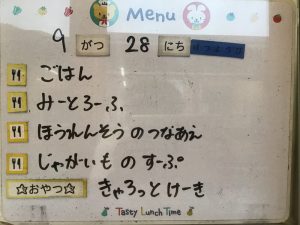 Menu
9 がつ 28 にち
ごはん
みーとろーふ
ほうれんそう の つなあえ
じゃがいも の すーぷ
☆おやつ☆ きゃろっと けーき
Tasty Lunch Time